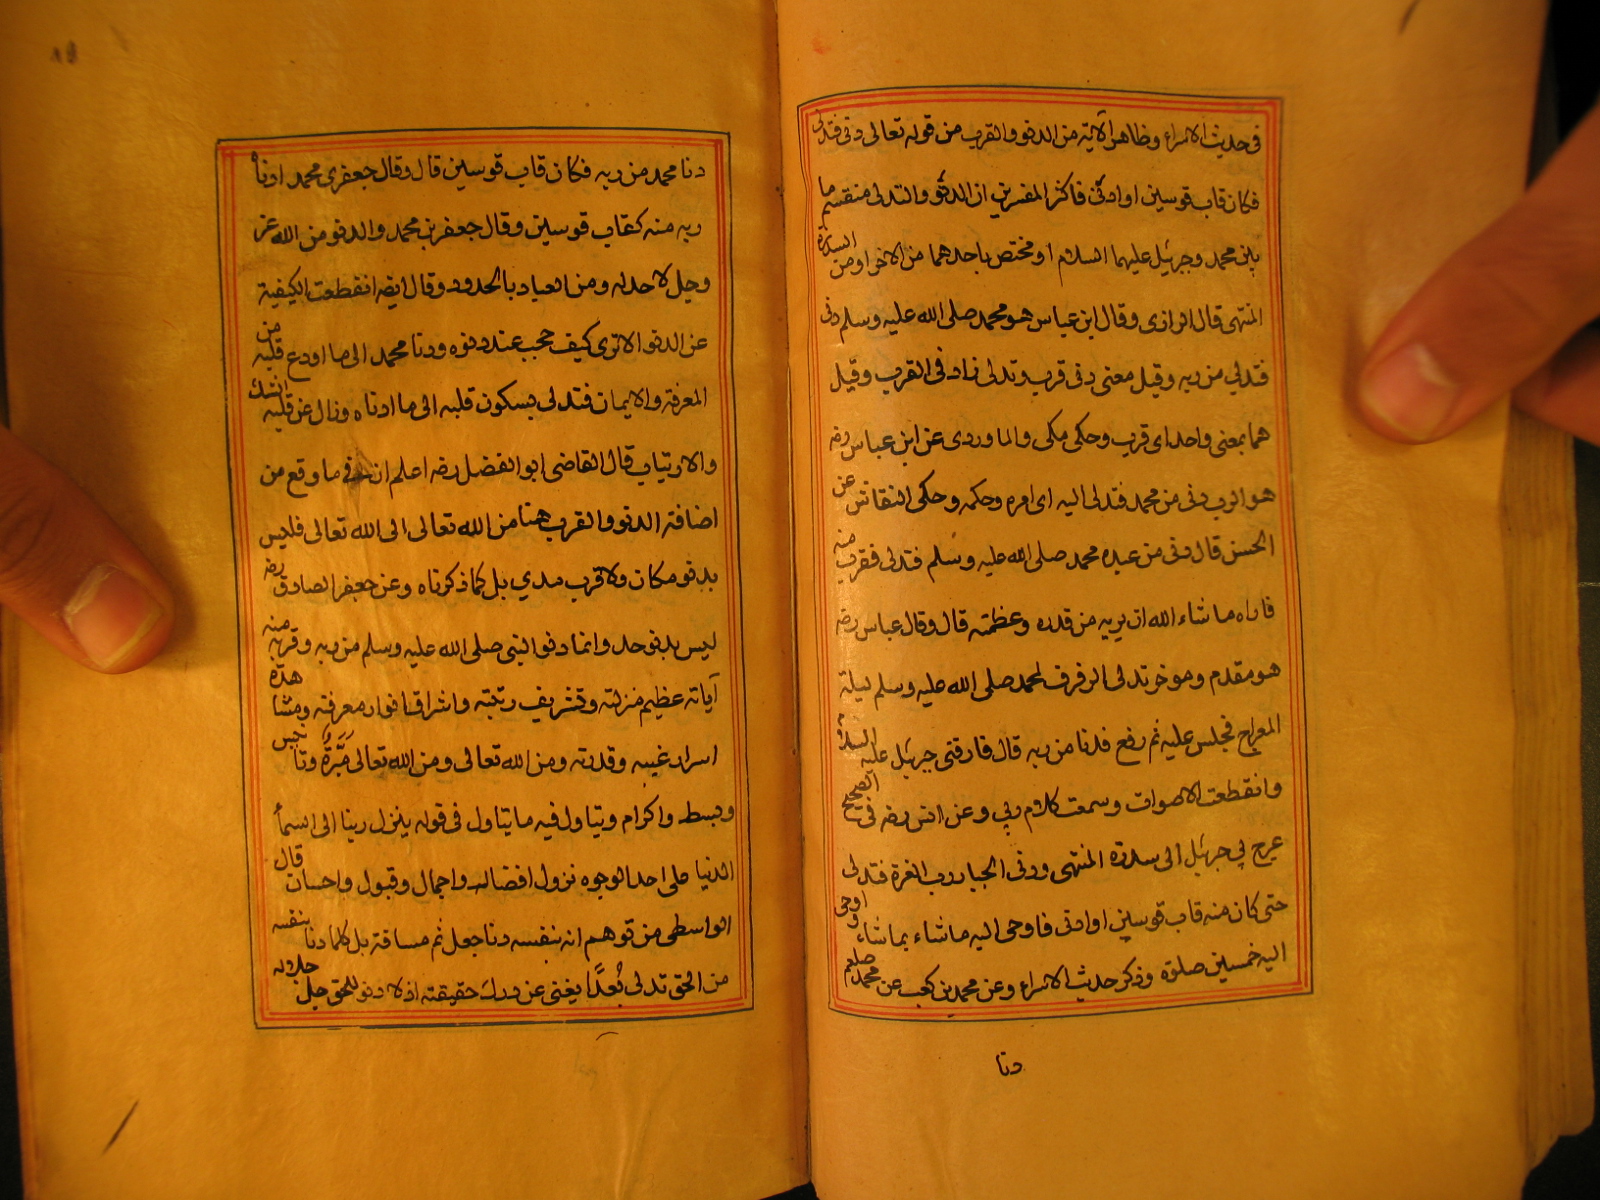 في حديث الاسراء وظاهر الآية من الدنو والقرب من قوله تعالى دنى فتدلى
فكان قاب قوسين او ادنى فاكثر المفسرين ان الدنو والتدلى منقسم ما
بين محمد وجبرئيل عليهما السلام او مختص باحدهما من الاخر او من السدرة
المنتهى قال الرازى وقال ابن عباس هو محمد صلى الله عليه وسلم دنى
فتدلى من ربه وقيل معنى دنى قرب وتدلى زاد فى القرب وقيل
هما بمعنى واحد اى قرب وحكى مكى والماوردى عن ابن عباس رضه
هو الرب دنى من محمد فتدلى اليه اى امره وحكمه وحكى النقاش عن
الحسن قال دنى من عبده محمد صلى الله عليه وسلم فتدلى فقرب منه
فاراه ما شاء الله ان يريه من قدره وعظمته قال وقال عباس رضه
هو مقدم وموخر تدلى الرفرف لمحمد صلى الله عليه وسلم ليلة
المعراج فجلس عليه ثم رفع فدنا من ربه قال فارقنى جبرئيل عليه السلام
وانقطعت الاصوات وسمعت كلام ربي وعن انس رضه فى الصحيح
عرج بي جبرئيل الى سدرة المنتهى ودنى الجبار رب العزة فتدلى
حتى كان منه قاب قوسين او ادنى فاوحى اليه ما شاء بما شاء واوحى
اليه خمسين صلوة وذكر حديث الاسراء وعن محمد بن كعب عن محمد صلعم
دنا
دنا محمد من ربه فكان قاب قوسين قال وقال جعفر بن محمد ادناه
ربه منه كقاب قوسين وقال جعفر بن محمد والدنو من الله عز
وجل لا حد له ومن العباد بالحدود وقال ايضه انقطعت الكيفية
عن الدنو الا ترى كيف حجب عند دنوه ودنا محمد الى ما اودع قلبه من
المعرفة والايمان فتدلى بسكون قلبه الى ما ادناه وزال عن قلبه الشك
والارتياب قال القاضى ابو الفضل رضه اعلم ان ما وقع من
اضافة الدنو والقرب هنا من الله تعالى الى الله تعالى فليس
بدنو مكان ولا قرب مدي بل كما ذكرناه وعن جعفر الصادق رضه
ليس بدنو حد وانما دنو النبى صلى الله عليه وسلم من ربه وقربه منه
آياته عظيم منزلته وتشريف رتبته واشراق انوار معرفته ومشاهدة
اسرار غيبه وقدرته ومن الله تعالى ومن الله تعالى مَبَّرةٌ وتانيس
وبسط واكرام ويتاول فيه ما يتاول فى قوله ينزل ربنا الى السماء
الدنيا على احد الوجوه نزول افضال واجمال وقبول واحسان قال
الواسطى من توهم انه بنفسه دنا جعل ثم مسافة بل كلما دنا بنفسه
من الحق تدلى بُعدًا يعنى عن درك حقيقته اذ لا دنو للحق جل جلاله